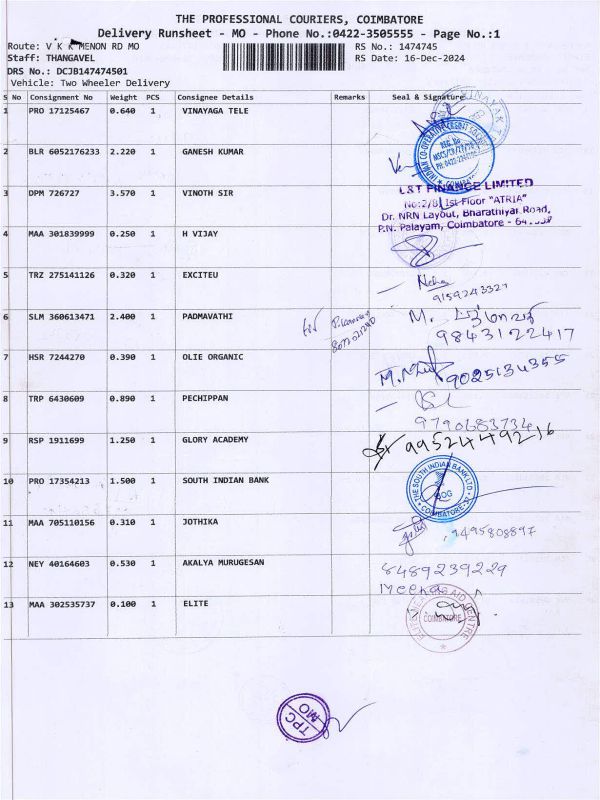 THE PROFESSIONAL COURIERS, COIMBATORE
Delivery Runsheet - MO - Phone No.:0422-3505555 - Page No.:1
Route: V K K MENON RD MO
RS No.: 1474745
Staff: THANGAVEL
RS Date: 16-Dec-2024
DRS No.: DCJB147474501
Vehicle: Two Wheeler Delivery
S No Consignment No Weight PCS Consignee Details Remarks Seal & Signature
1 PRO 17125467 0.640 1 VINAYAGA TELE
2 BLR 6052176233 2.220 1 GANESH KUMAR
3 DPM 726727 3.570 1 VINOTH SIR
L&T FINANCE LIMITED
No:2/B, Ist Floor "ATRIA"
Dr. NRN Layout, Bharathiyar Road,
P.N. Palayam, Coimbatore -
4 MAA 301839999 0.250 1 H VIJAY
5 TRZ 275141126 0.320 1 EXCITEU
Neha
9159243327
6 SLM 360613471 2.400 1 PADMAVATHI
M.
9843122417
7 HSR 7244270 0.390 1 OLIE ORGANIC
9025134355
8 TRP 6430609 0.890 1 PECHIPPAN
9790683734
9 RSP 1911699 1.250 1 GLORY ACADEMY
9952449216
10 PRO 17354213 1.500 1 SOUTH INDIAN BANK
THE SOUTH INDIAN BANK LTD
COIMBATORE
11 MAA 705110156 0.310 1 JOTHIKA
9495808897
12 NEY 40164603 0.530 1 AKALYA MURUGESAN
8489239229
Meena
13 MAA 302535737 0.100 1 ELITE
COIMBATORE
TPC
MO